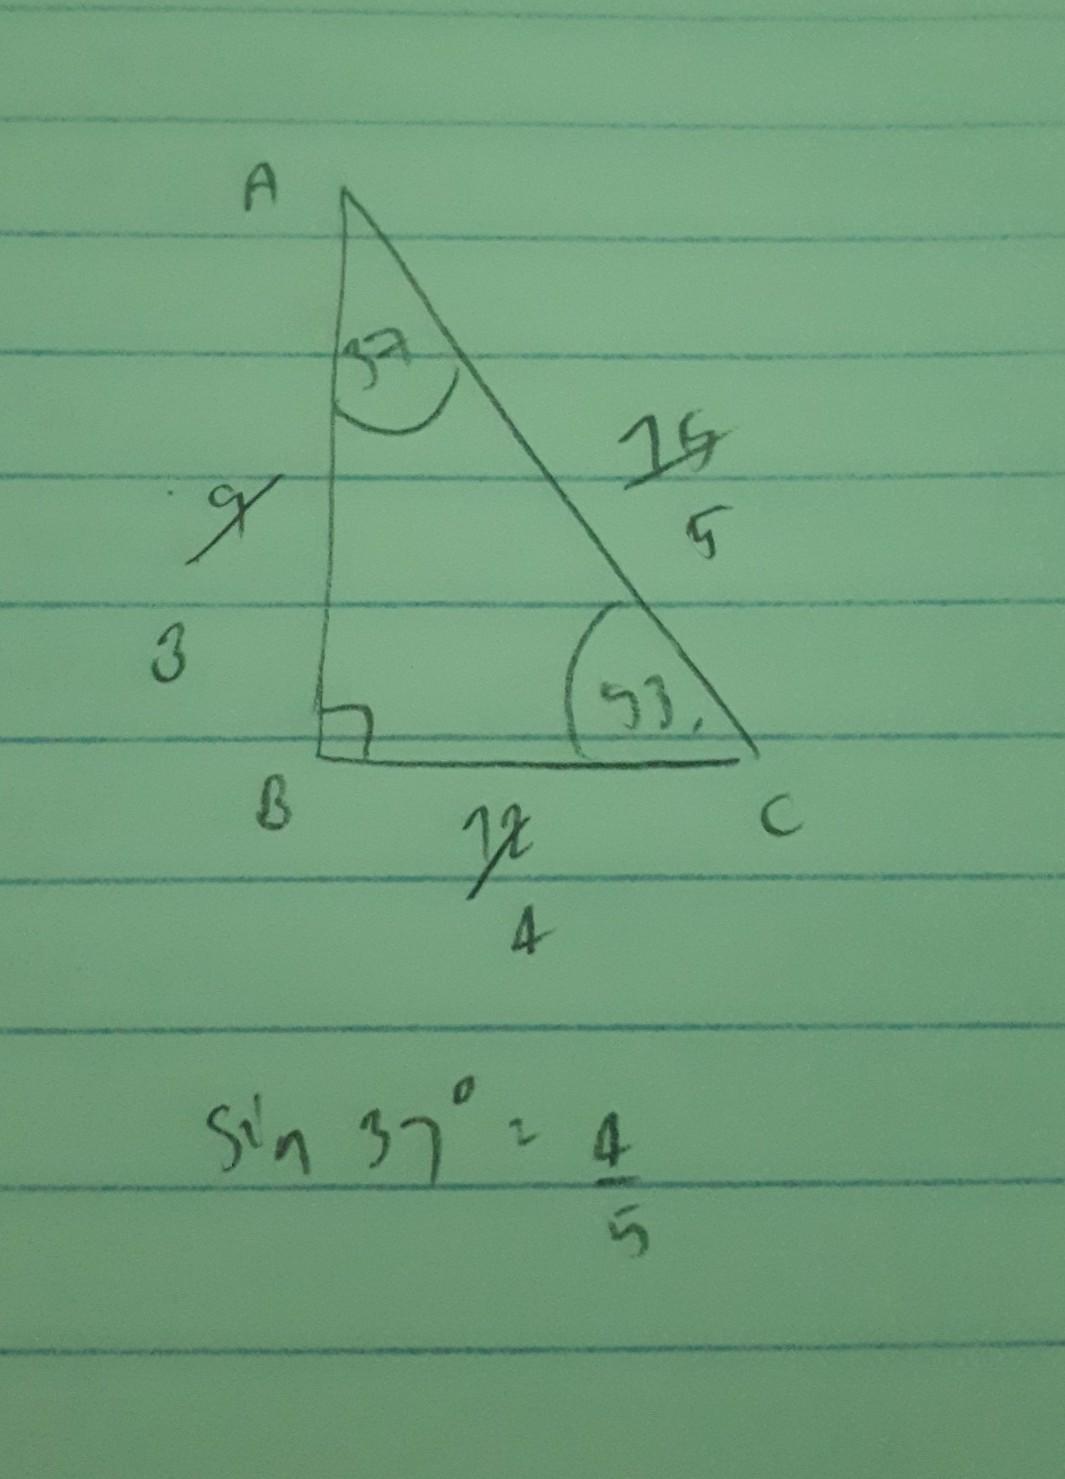 A
37
15
9
5
3
53.
B
C
12
4
sin 37° = 4
5